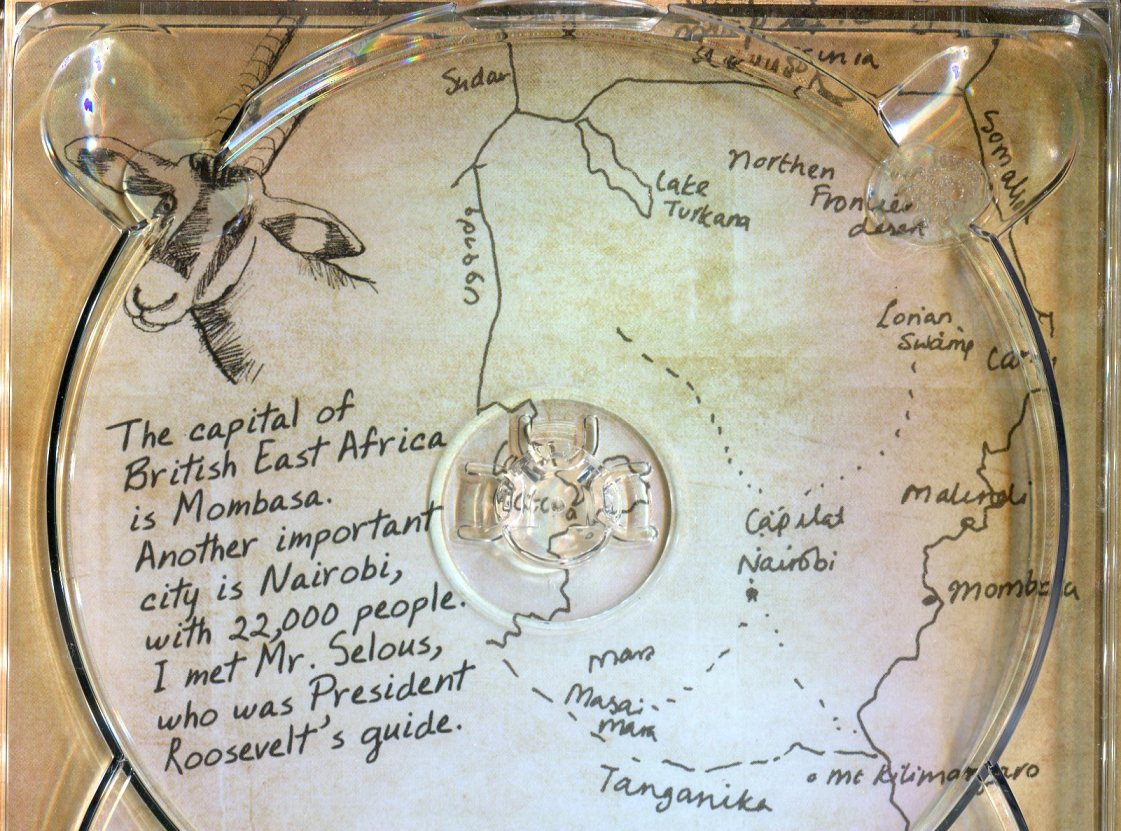 Sudan
Somalia
Uganda
Lake
Turkana
Northen
Frontier
desert
Lorian
Swamp
The capital of
British East Africa
is Mombasa.
Another important
city is Nairobi,
with 22,000 people.
I met Mr. Selous,
who was President
Roosevelt's guide.
Malindi
Capital
Nairobi
Mombasa
Mara
Masai
mara
Tanganika
Mt Kilimanjaro